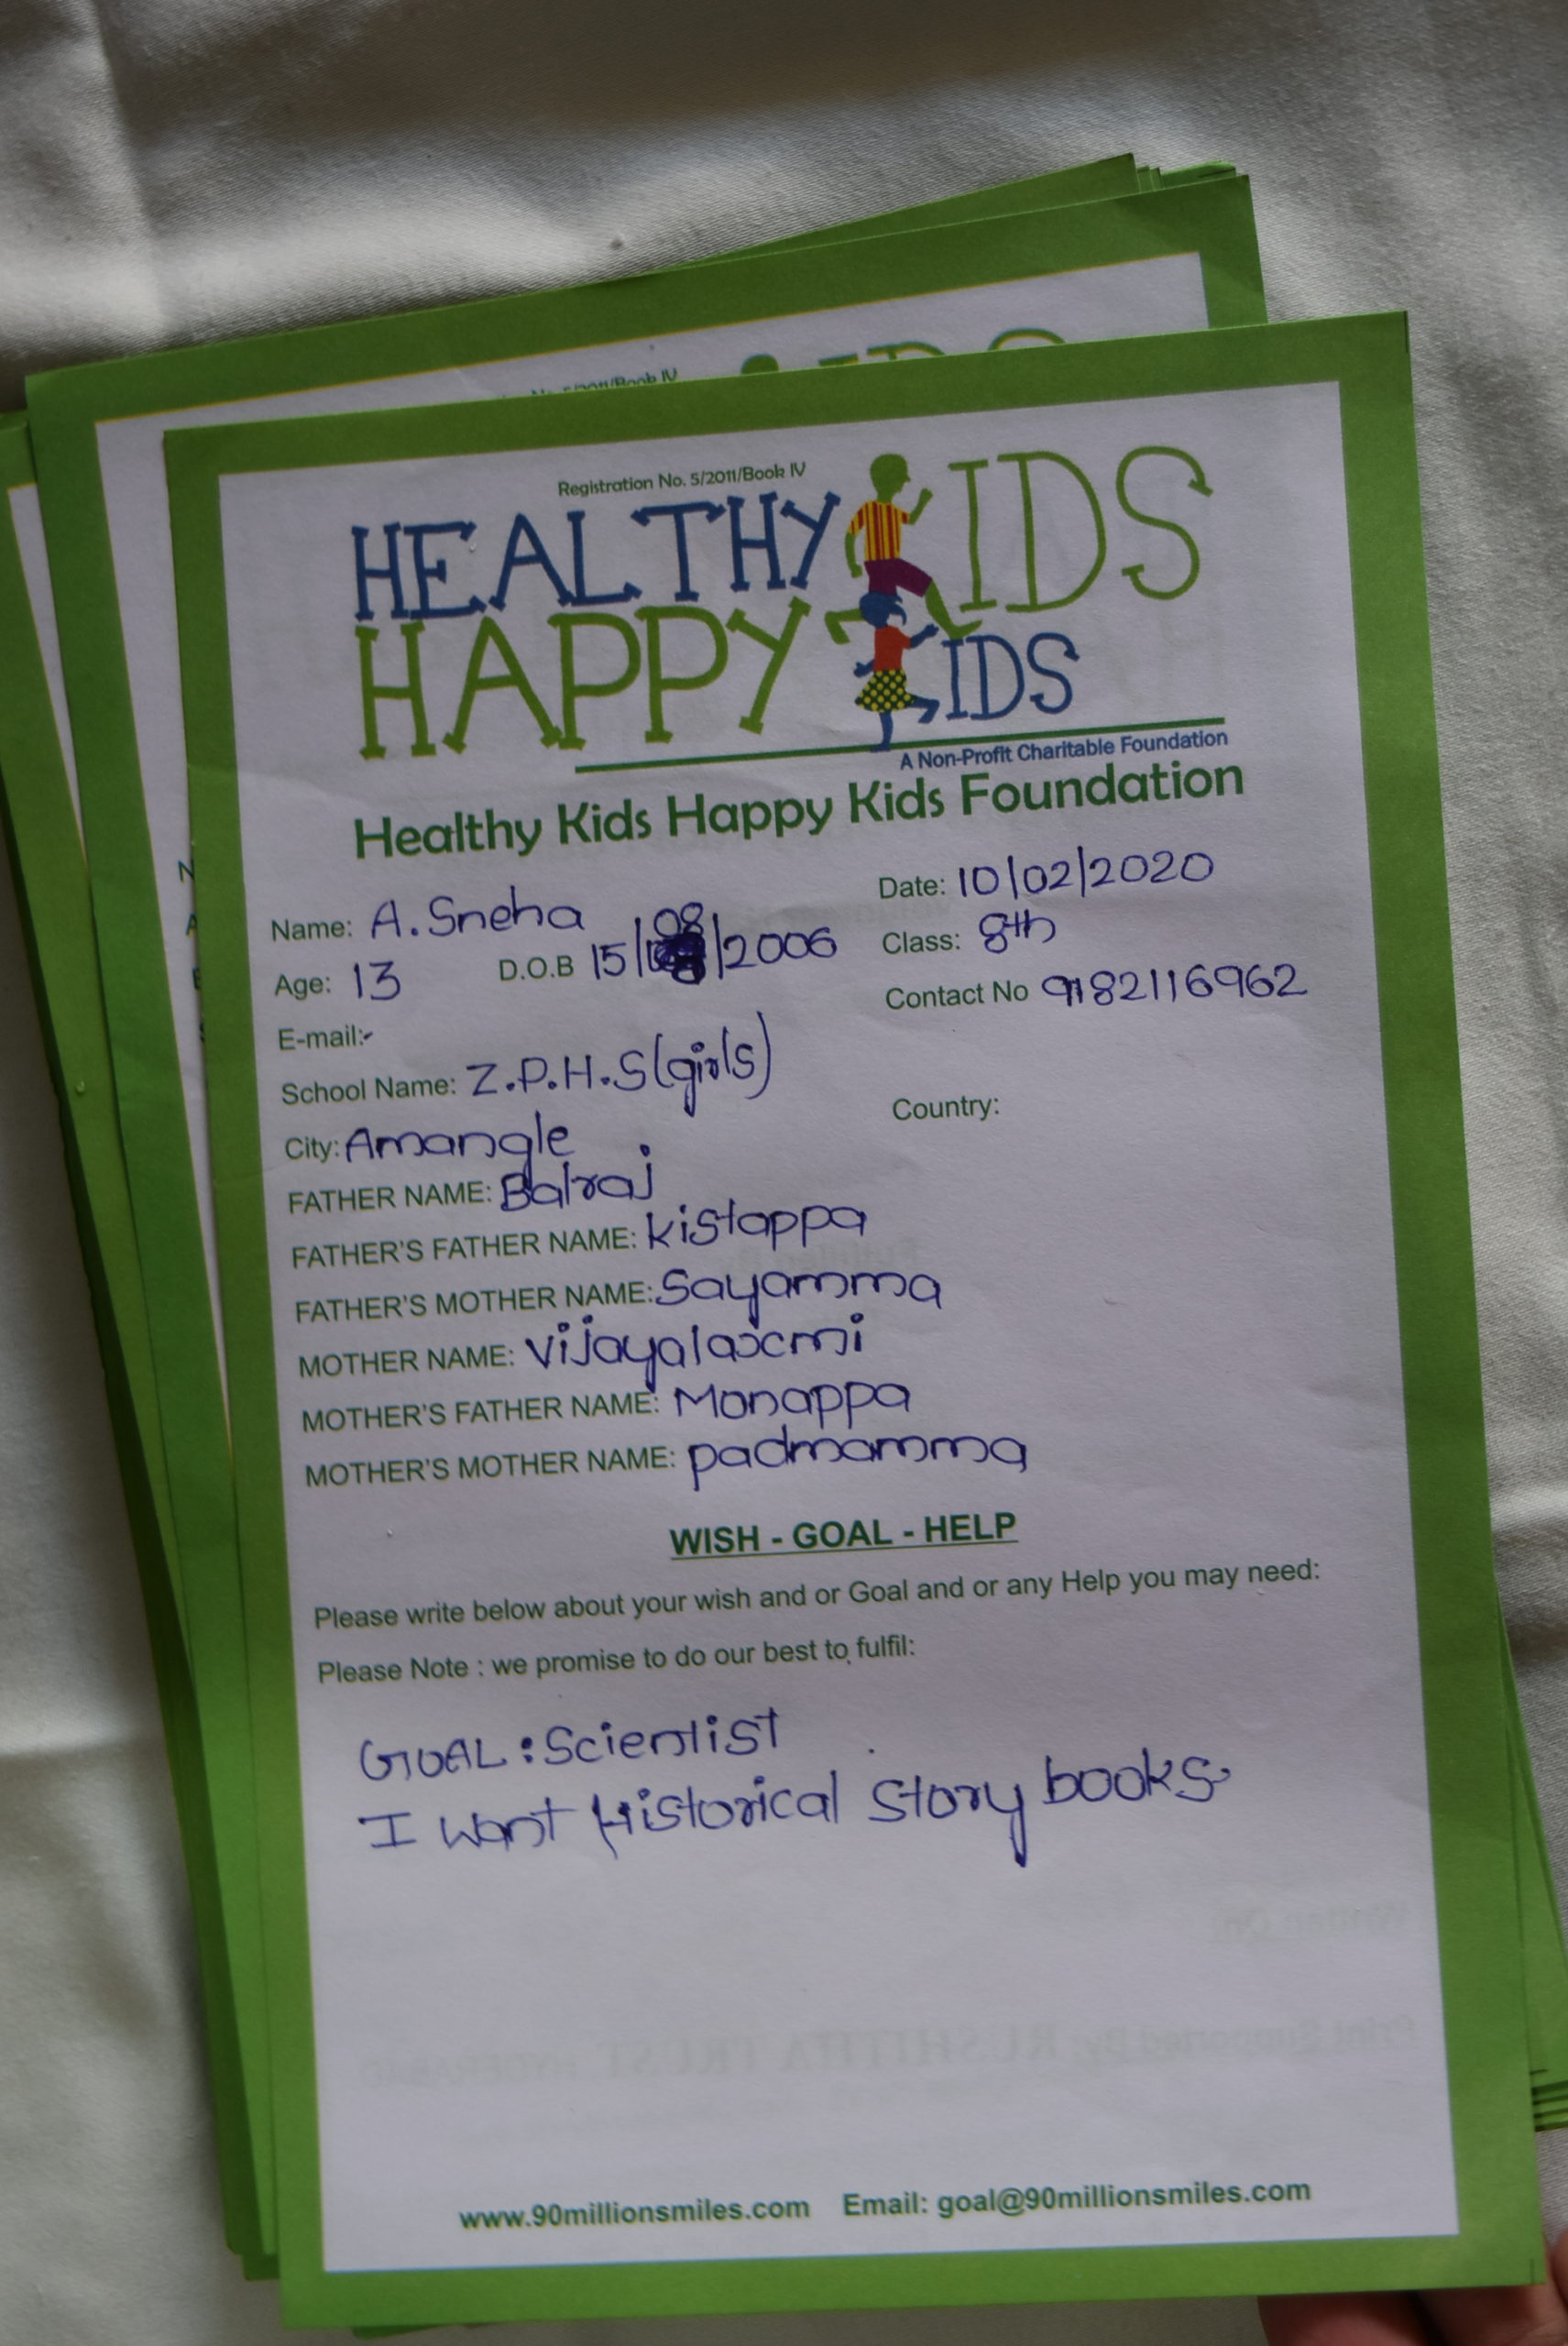 Registration No. 5/2011/Book IV
HEALTHY KIDS
HAPPY KIDS
A Non-Profit Charitable Foundation
Healthy Kids Happy Kids Foundation
Date: 10/02/2020
Name: A. Sneha
Class: 8th
Age: 13 D.O.B 15/08/2006
Contact No 9182116962
E-mail:-
School Name: Z.P.H.S(girls)
Country:
City: Amangle
FATHER NAME: Balraj
FATHER'S FATHER NAME: kistappa
FATHER'S MOTHER NAME: Sayamma
MOTHER NAME: Vijayalaxmi
MOTHER'S FATHER NAME: Monappa
MOTHER'S MOTHER NAME: padmamma
WISH - GOAL - HELP
Please write below about your wish and or Goal and or any Help you may need:
Please Note : we promise to do our best to fulfil:
GOAL : Scientist
I want Historical Story books
www.90millionsmiles.com Email: goal@90millionsmiles.com